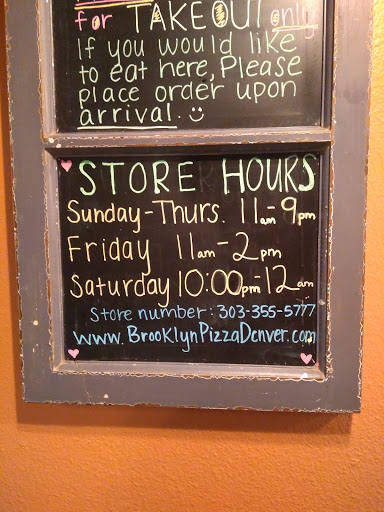 for TAKEOUT only
If you would like
to eat here, Please
place order upon
arrival. :)
STORE HOURS
Sunday-Thurs. 11am-9pm
Friday 11am-2pm
Saturday 10:00pm-12am
Store number: 303-355-5777
www.BrooklynPizzaDenver.com